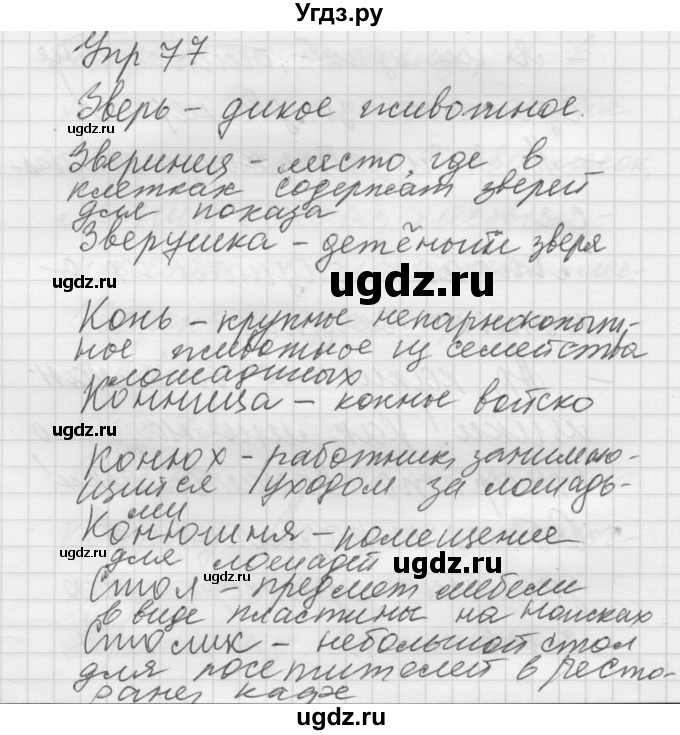 Угдз.ру
Упр 77
Зверь – дикое животное.
ugdz.ru
Зверинец – место, где в
клетках содержат зверей
для показа
Зверушка – детёныш зверя
ugdz.ru
ugdz.ru
Конь – крупные непарнокопыт-
ное животное из семейства
лошадиных
Конница – конное войско
ugdz.ru
Конюх – работник, занимаю-
щийся уходом за лошадь-
ми
Конюшня – помещение
ugdz.ru
для лошадей
ugdz.ru
ugdz.ru
Стол – предмет мебели
в виде пластины на ножках
Столик – небольшой стол
ugdz.ru
для посетителей в ресто-
ране, кафе
ugdz.ru